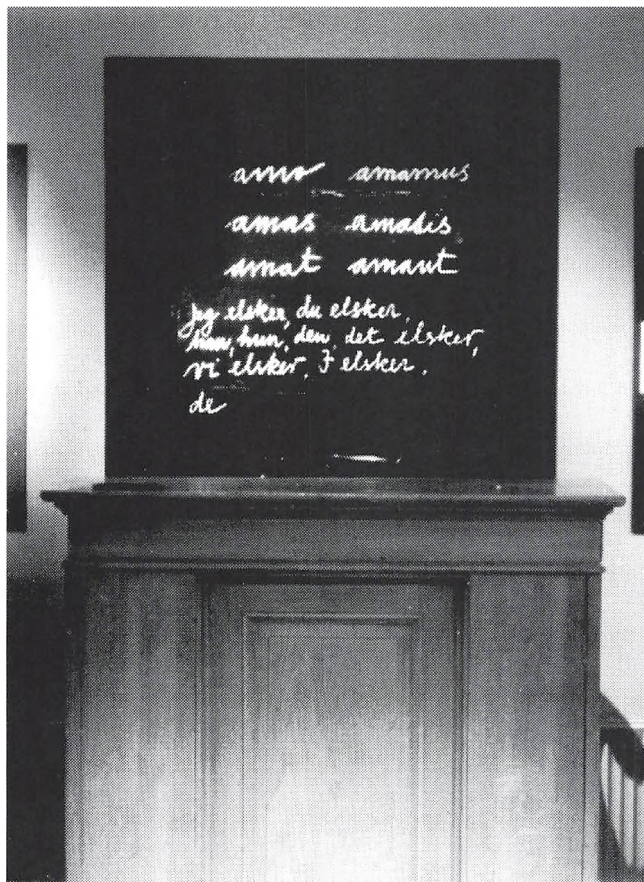 amo amamus
amas amatis
amat amant
jeg elsker, du elsker,
han, hun, den, det elsker,
vi elsker, I elsker,
de